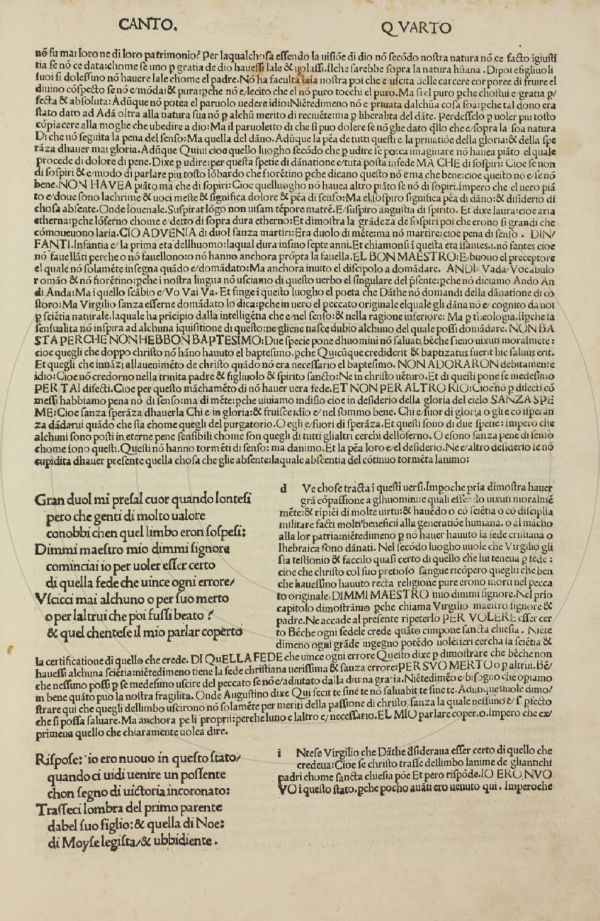 CANTO. QVARTO
nō fu mai loro ne di loro patrimonio? Per laqualchosa essendo la uisiōe di dio nō secōdo nostra natura nō ce facto igiusti
tia se nō ce data: chome se uno p gratia de dio hauessi lale & uolassi. Ilche sarebbe sopra la natura hūana. Dipoi esigliuoli
suoi si dolessino nō hauere lale chome el padre. Nō ha faculta laia nostra poi che e/uscita delle carcere corporee di fruire el
diuino cōspecto se nō e/mōda: & pura: pche nō e/lecito che el nō puro tocchi el puro. Ma si el puro pche chostui e gratia p/
fecta & absoluta: Adūque nō potea el paruolo uedere idio: Niētedimeno nō e priuata dalchūa cosa soa: pche tal dono era
stato dato ad Adā oltra alla natura sua nō p alchū merito di receuēte: ma p liberalita del dāte. Perdessolo p uoler piu tosto
cōpiacere alla moglie che ubedire a dio: Ma il paruoletto di che si puo dolere se nō gle dato qllo che e/sopra la soa natura
Di che nō seguita la pena del senso: Ma quella del dāno. Adūque la pēa de tutti questi e la priuatiōe della gloria: & della spe
rāza dhauer mai gloria. Adūque Quiui cioe quello luogho secōdo che p udire se potea imaginare nō hauea piāto el quale
procede di dolore di pene. Dixe p udire: per questa spetie di dānatione e/tuta posta insede MA CHE di sospiri: Cioe se non
di sospiri & e/modo di parlare piu tosto lōbardo che fiorētino pche dicane questo nō e ma che bene: cioe questo no e/se nō
bene. NON HAVEA piāto ma che di sopiri: Cioe quelluogho nō hauea altro piāto se nō di sopiri. Impero che el uero piā
to e/doue sono lachrime & uoci meste & significa dolore & pēa di senso: Ma el sospiro significa pēa di dāno: & disiderio di
chosa absente. Onde Iouenale. Suspirat lōgo non uisam tēpore matrē. E/suspiro angustia di spirito. Et dixe laura: cioe aria
etherna: pche losserno chome e/detto di sopra dura etherno: Et dimostra la grādeza de sospiri poi che erono si grandi che
cōmoueuono laria. CIO ADVENIA di duol sanza martiri: Era duolo di mēte: ma nō martire: cioe pena di senso. DIN/
FANTI. Infantia e/la prima eta dellhuomo: laqual dura insino septe anni. Et chiamonsi i questa eta ifantes. i. nō fantes cioe
nō fauellāti perche o nō fauellono: o nō hanno anchora prōpta la fauella. EL BON MAESTRO: E/buono el preceptore
el quale nō solamēte insegna quādo e/domādato: Ma anchora muta el discipolo a domādare. ANDI Vada. Vocabulo
romāo & nō fiorētino: pche i nostra lingua nō usciamo di questo uerbo el singulare del psente: pche nō diciamo Ando An
di Anda: Ma i quello scābio e/Vo Vai Va. Et finge i questo luogho el poeta che Dāthe nō domandi della dānatione di co
storo: Ma Virgilio sanza esserne domādato lo dica: pche in uero el peccato originale el quale gli dāna nō e cognito da noi
p sciētia naturale. laquale ha pricipio dalla intelligētia che e/nel senso: & nella ragione inferiore: Ma p theologia. Ilpche la
sensualita nō inspira ad alchuna iquisitione di questo: ne gliene nasce dubio alchuno del quale possi domādare. NON BA
STA PERCHE NON HEBBON BAPTESIMO: Due specie pone dhuomini nō saluati bēche sieno uixuti moralmēte:
cioe quegli che doppo christo nō hāno hauuto el baptesimo. pche Quicūque crediderit & baptizatus fuerit hic saluus erit.
Et quegli che inuāzi allauenimēto de christo quādo nō era necessario el baptesimo. NON ADORARON debitamente
idio: Cioe nō credendo nella trinita padre & figliuolo & spirito sancto: Ne in christo uēturo. Et di questi pone se medesimo
PER TAI disecti: Cioe per questo mācamēto di nō hauer uera fede. ET NON PER ALTRO RIO: Cioe nō p dilecti cō
messi habbiamo pena nō di senso: ma di mēte: pche uiuiamo indisio cioe in desiderio della gloria del cielo SANZA SPE
ME: Cioe sanza sperāza dhauerla Chi e in gloria: & fruisce idio e/nel sommo bene. Chi e/fuor di gloria o gli e cō speran
za dādarui quādo che sia chome quegli del purgatorio. O egli e/fuori di sperāza. Et questi sono di due spetie: impero che
alchuni sono posti in eterne pene sensibili chome son quegli di tutti glialtri cerchi dellōferno. O e/sono sanza pene di senso
chome sono questi. Questi nō hanno tormēti di senso: ma danimo. Et la pēa loro e/el desiderio. Ne e/altro desiderio se nō
cupidita dhauer presente quella chosa che glie absente: laquale absentia del cōtinuo tormēta lanimo:
Gran duol mi presal cuor quando lontesi
pero che genti di molto ualore
conobbi chen quel limbo eron sospesi:
Dimmi maestro mio dimmi signore
cominciai io per uoler esser certo
di quella fede che uince ogni errore/
Vscicci mai alchuno o per suo merto
o per laltrui che poi fussi beato?
& quel chentese il mio parlar coperto
d Ve chose tracta i questi uersi. Impoche pria dimostra hauer
grā cōpassione a glhuomini: quali essendo uixuti moralmē
mēte: & ripiēi di molte uirtu: & hauēdo o cō sciētia o cō disciplia
militare facti molti beneficii alla generatiōe humana. o al mācho
alla lor patria: niētedimeno p nō hauer hauuto la fede cristiana o
lhebraica sono dānati. Nel secōdo luogho uuole che Virgilio gli
sia testiōio & faccilo quasi certo di quello che lui teneua p fede:
cioe che christo col suo pretioso sangue ricōpero quegli: che ben
che hauessino hauuto recta religione pure erono morti nel pecca
to originale. DIMMI MAESTRO mio dimmi signore. Nel prio
capitolo dimostrāmo pche chiama Virgilio maestro signore &
padre. Ne accade al presente ripeterlo PER VOLERE esser cer
to Bēche ogni fedele crede quāto cimpone sancta chiesa. Niēte
dimeno ogni grāde ingegno potēdo uoletieri cercha la sciētia &
la certificatione di quello che crede. DI QVELLA FEDE che uince ogni errore Questo dixe p dimostrare che bēche non
hauessi alchuna sciētia: niētedimeno tiene la fede christiana uerissima & sanza errore: PER SVO MERTO o p altrui. Bē/
che nessuno possi p se medesimo uscire del peccato se nō e/adiutato dalla diuina gratia. Niētedimēo e/bisogno che opiamo
in bene quāto può la nostra fragilita. Onde Augustino dixe Qui fecit te sine te nō saluabit te sine te. Adunque uuole dimo/
strare qui che quegli dellimbo uscirono nō solamēte per meriti della passione di christo. sanza la quale nessuno e/ pfecto
che si possa saluare. Ma anchora pe li proprii: perche luno e laltro e/ necessario. EL MIO parlare coperto. Impero che ex/
primeua quello che chiaramente uolea dire.
Rispose: io ero nuouo in questo stato/
quando ci uidi uenire un possente
chon segno di uictoria incoronato:
Trasseci lombra del primo parente
dabel suo figlio: & quella di Noe:
di Moyse legista/& ubbidiente.
i Ntese Virgilio che Dāthe disideraua esser certo di quello che
credeua: Cioe se christo trasse dellimbo lanime de gliantichi
padri chome sancta chiesa pōe Et pero rispōde. IO ERO NVO
VO i questo stato. pche pocho auāti ero uenuto qui. Imperoche